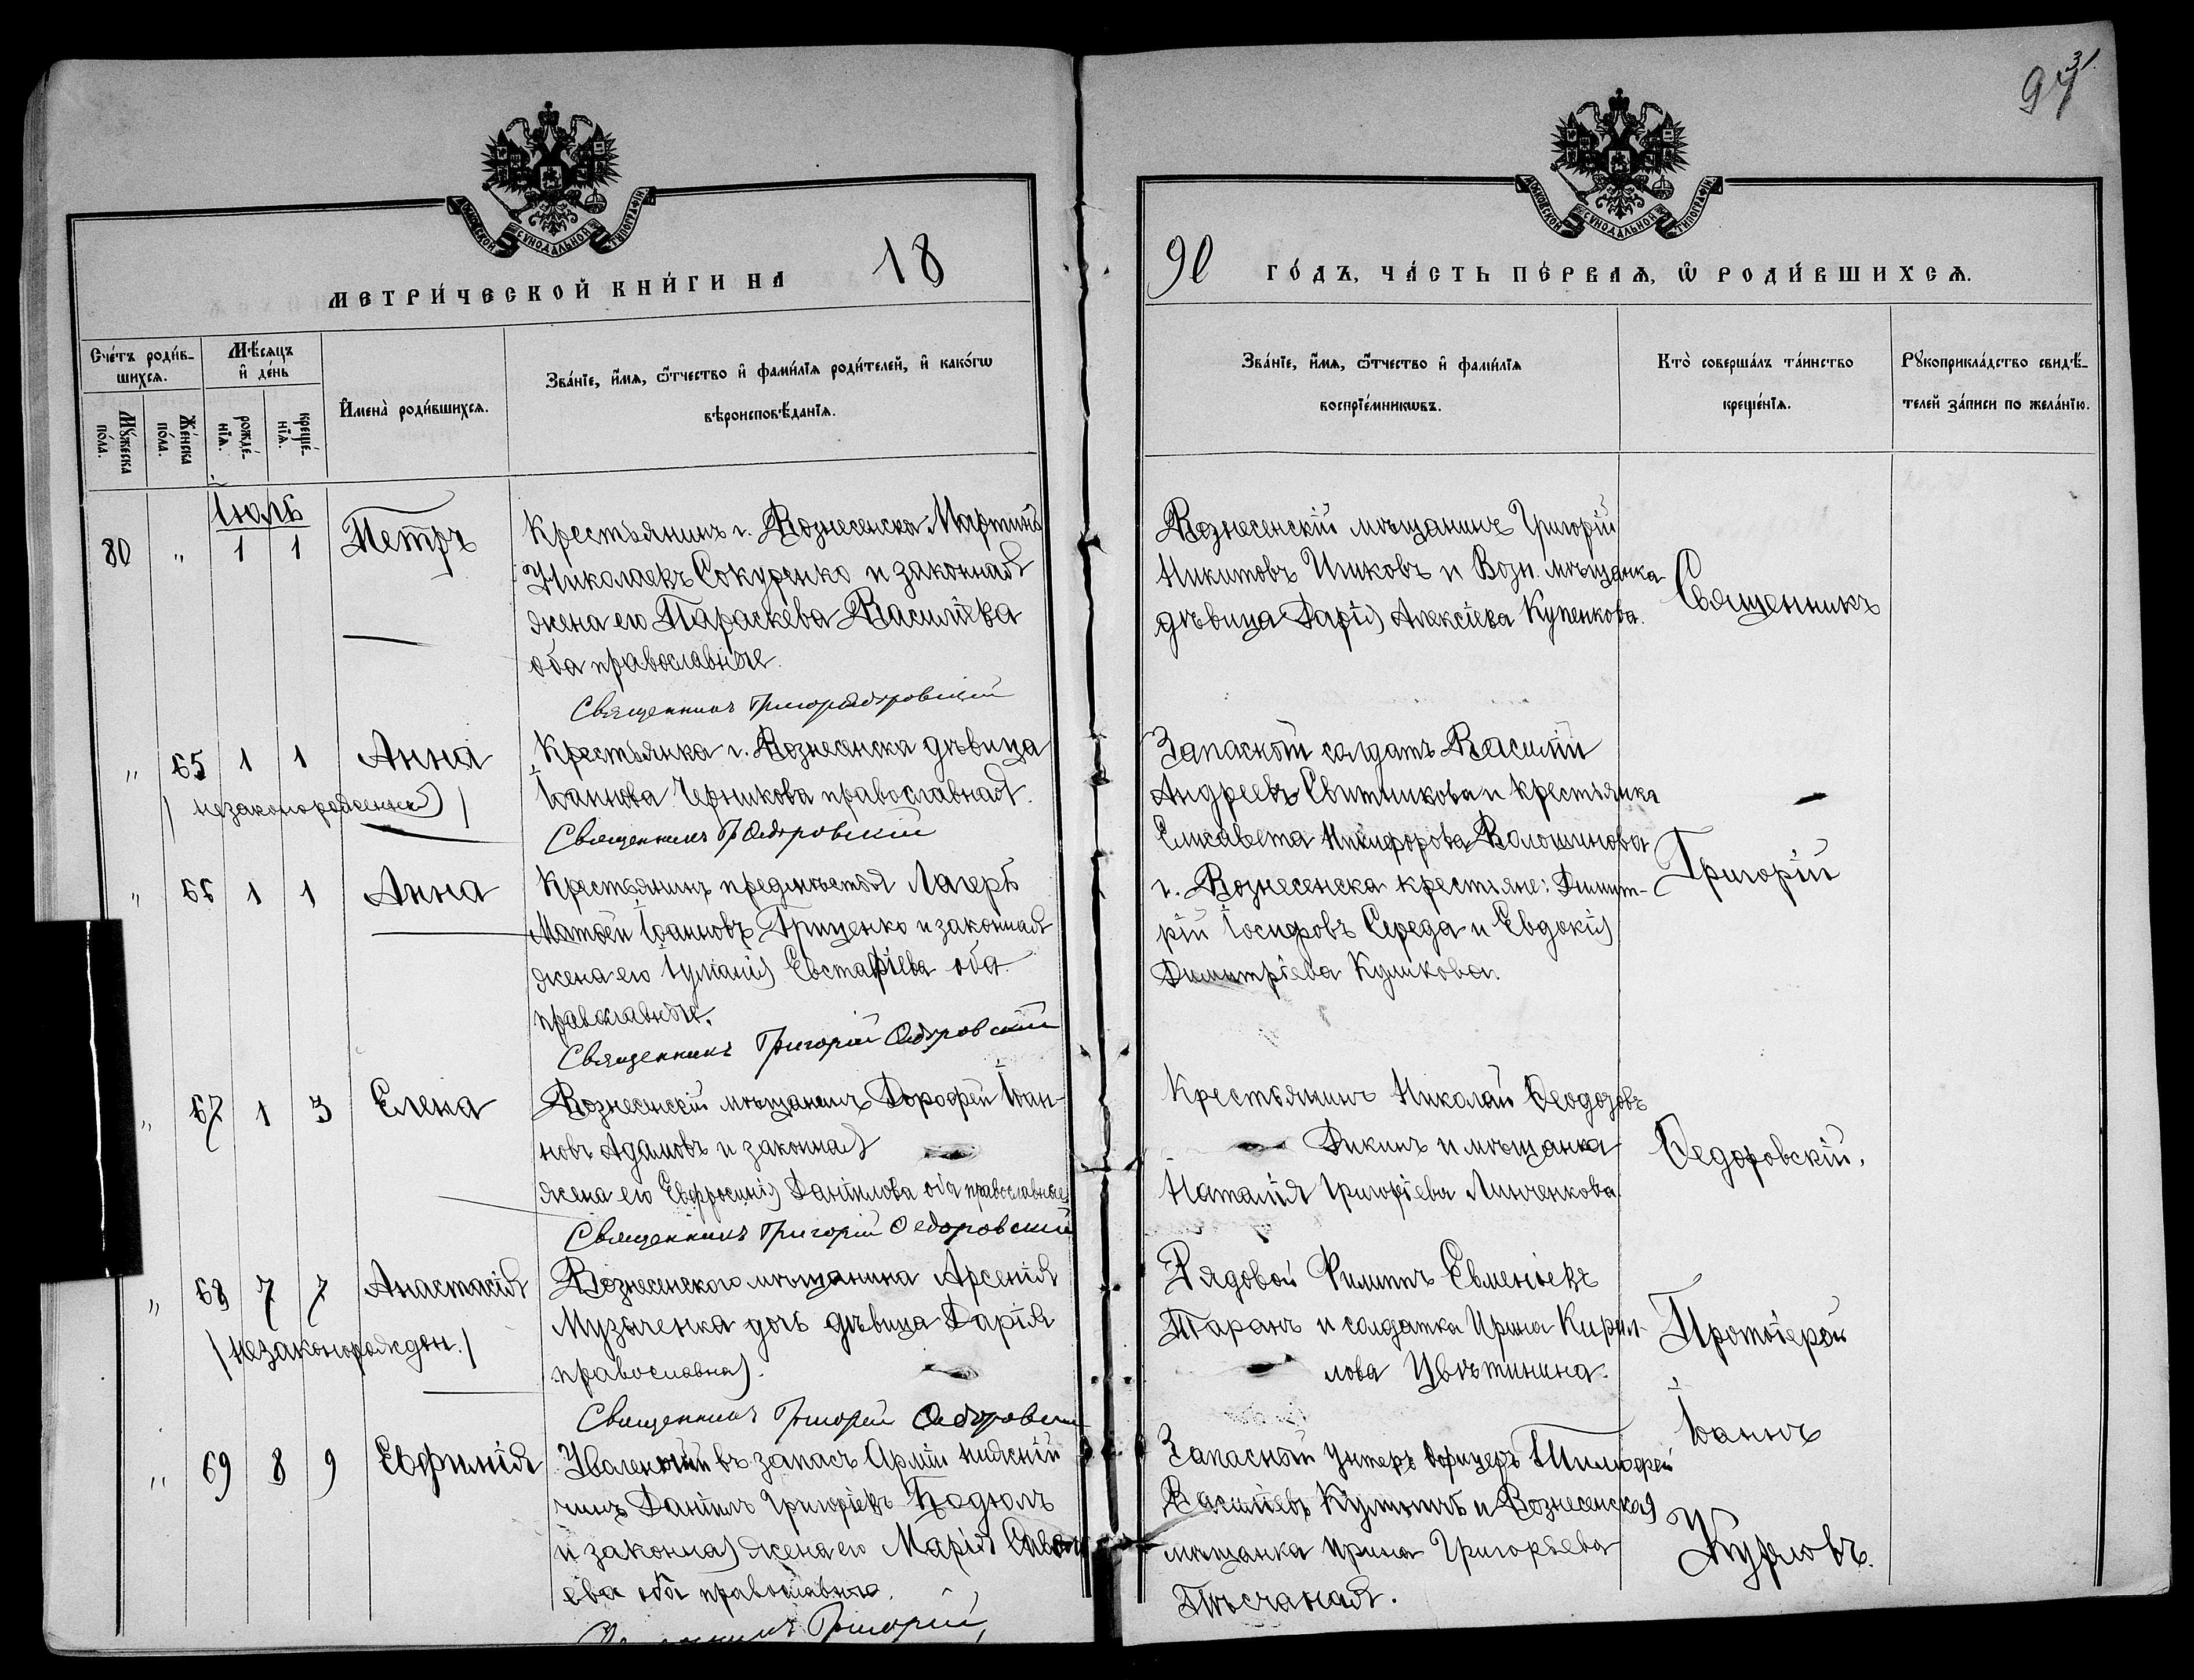 31
94
МОСКОВСКОЙ СУНОДАЛЬНОЙ ТИПОГРАФІИ
МОСКОВСКОЙ СУНОДАЛЬНОЙ ТИПОГРАФІИ
МЕТРИ́ЧЕСКОЙ КНИ́ГИ НА 18
90 ГО́ДЪ, ЧА́СТЬ ПЕ́РВАѦ, Ѡ РОДИ́ВШИХСѦ.
Сче́тъ роди́в-
шихсѧ.
Мꙋ́жеска по́ла.
Же́нска по́ла.
Мѣ́сѧцъ
и де́нь
рожде́-нїѧ.
креще́-нїѧ.
Имена̀ роди́вшихсѧ.
Зва́нїе, и́мѧ, ѻ́тчество и фами́лїѧ роди́телей, и како́гѡ
вѣроисповѣ́данїѧ.
Зва́нїе, и́мѧ, ѻ́тчество и фами́лїѧ
воспрїе́мникѡвъ.
Кто̀ соверша́лъ та́инство
креще́нїѧ.
Рꙋкоприкла́дство свидѣ́-
телей за́писи по жела́нїю.
Іюль
80 " 1 1 Петръ
Крестьянинъ г. Вознесенска Мартинъ
Николаевъ Сокуренко и законная
жена его Параскева Василіева
оба православные.
Священникъ Григорій Ѳедоровскій
Вознесенскій мѣщанинъ Григорій
Никитовъ и Возн. мѣщанка
дѣвица Дарія Алексіева Купенкова.
Священникъ
" 65 1 1 Анна
/незаконорожденная/
Крестьянка г. Вознесенска дѣвица
Іоаннова Черникова православная.
Священникъ Г Ѳедоровскій
Запасный солдатъ Василій
Андреевъ Свитников и крестьянка
Елисавета Никифорова Волошинова
" 66 1 1 Анна
Крестьянинъ предмѣстья Лагерь
Матѳей Іоанновъ Гриценко и законная
жена его Іуліанія Евстафіева оба
православные.
Священникъ Григорій Ѳедоровскій
г. Вознесенска крестьяне: Димит-
рій Іосифовъ Середа и Евдокія
Димитріева Куликова.
Григорій
" 67 1 3 Елена
Вознесенскій мѣщанинъ Дорофей Іоан-
новъ Адамовъ и законная
жена его Евфросинія Даніилова оба православные
Священникъ Григорій Ѳедоровскій
Крестьянинъ Николай Ѳеодоровъ
Дикинъ и мѣщанка
Наталія Григоріева Линченкова.
Ѳедоровскій.
" 68 7 7 Анастасія
/незаконорожден./
Вознесенского мѣщанина Арсенія
Музыченка дочь дѣвица Дарія
православная.
Священникъ Григорій Ѳедоровскій
Рядовой Филиппъ Евменіевъ
Таранъ и солдатка Ирина Кирил-
лова Цвѣтинина.
Протоіерей
Іоаннъ
" 69 8 9 Евфимія
Уволенный въ запасъ Арміи нижній
чинъ Даніилъ Григоріевъ
и законная жена его Марія
ева оба православные.
Священникъ Григорій
Запасный унтеръ офицеръ Тимофей
Василіевъ и Вознесенская
мѣщанка Ирина Григорьева
Пѣсчаная.
Журловъ.